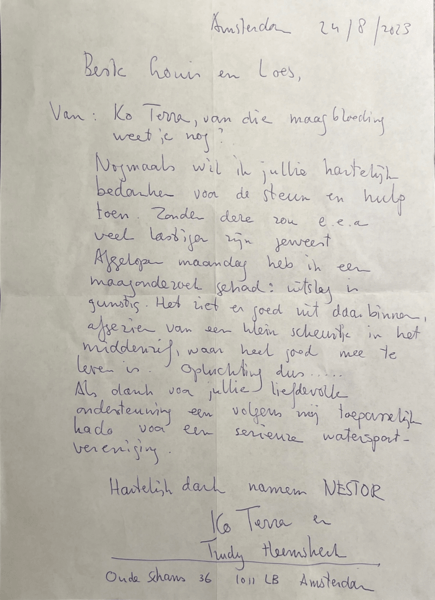 Amsterdam 24/8/2023
Beste Louis en Loes,
Van: Ko Terra, van die maagbloeding
weet je nog?
Nogmaals wil ik jullie hartelijk
bedanken voor de steun en hulp
toen. Zonder deze zou e.e.a
veel lastiger zijn geweest
Afgelopen maandag heb ik een
maagonderzoek gehad: uitslag is
gunstig. Het ziet er goed uit daarbinnen,
afgezien van een klein scheurtje in het
middenrif, waar heel goed mee te
leven is. Opluchting dus.....
Als dank voor jullie liefdevolle
ondersteuning een volgens mij toepasselijk
kado voor een serieuze watersport-
vereniging.
Hartelijk dank namens NESTOR
Ko Terra en
Trudy
Oude Schans 36 1011 LB Amsterdam